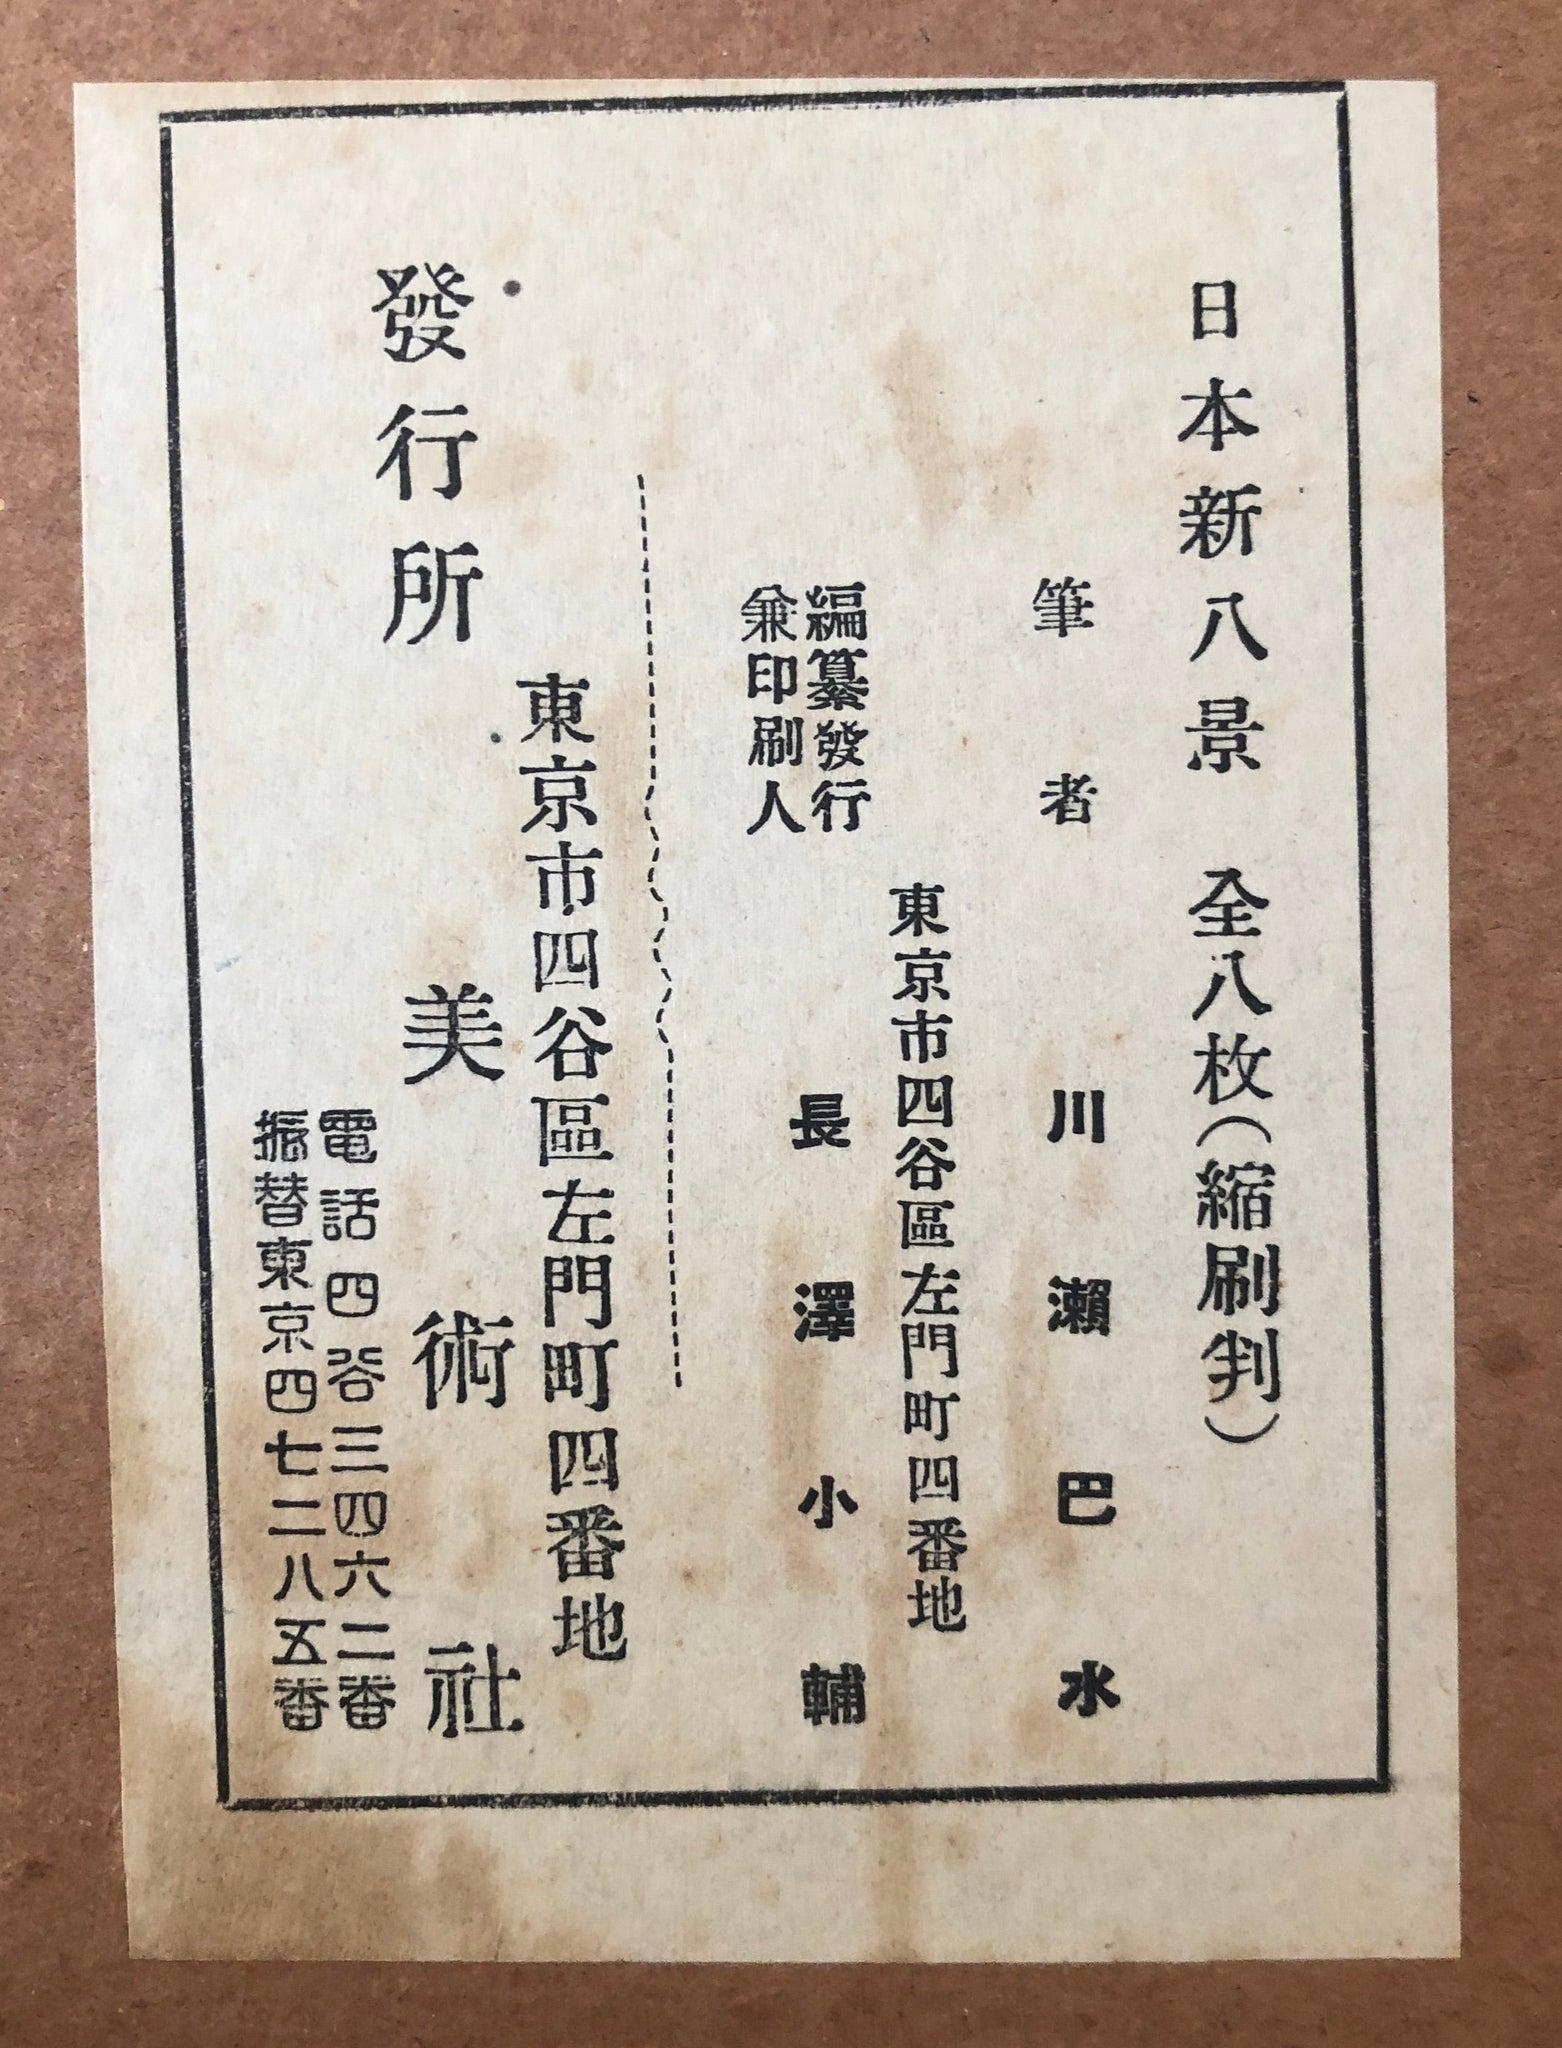 日本新八景 全八枚(縮刷判)
筆者 川瀨巴水
東京市四谷區左門町四番地
編纂發行
兼印刷人
長澤小輔
東京市四谷區左門町四番地
發行所 美術社
電話四谷三四六二番
振替東京四七二八五番